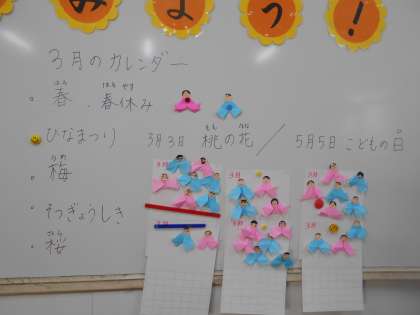 みよう!
3月のカレンダー
はる はる やす
・春 ・春休み
ひなまつり 3月3日 もも はな 桃の花 / 5月5日 こどもの日 ひ
うめ
・梅
・そつぎょうしき
さくら
・桜
3月 3月 3月
3月 3月